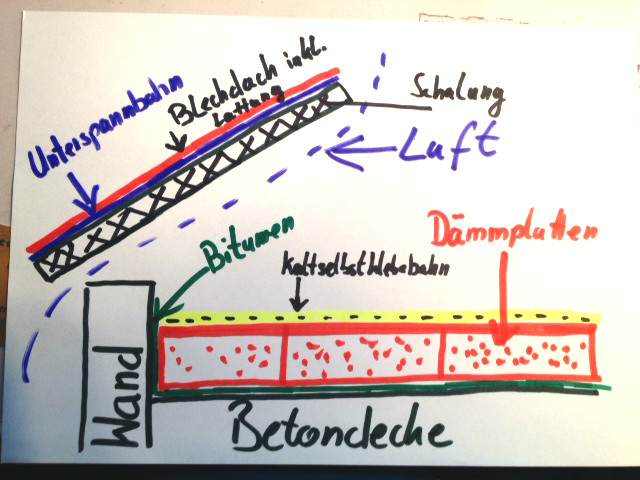 Unterspannbahn
Blechdach inkl.
Lattung
Schalung
Luft
Bitumen
Kaltselbstklebebahn
Dämmplatten
Wand
Betondecke